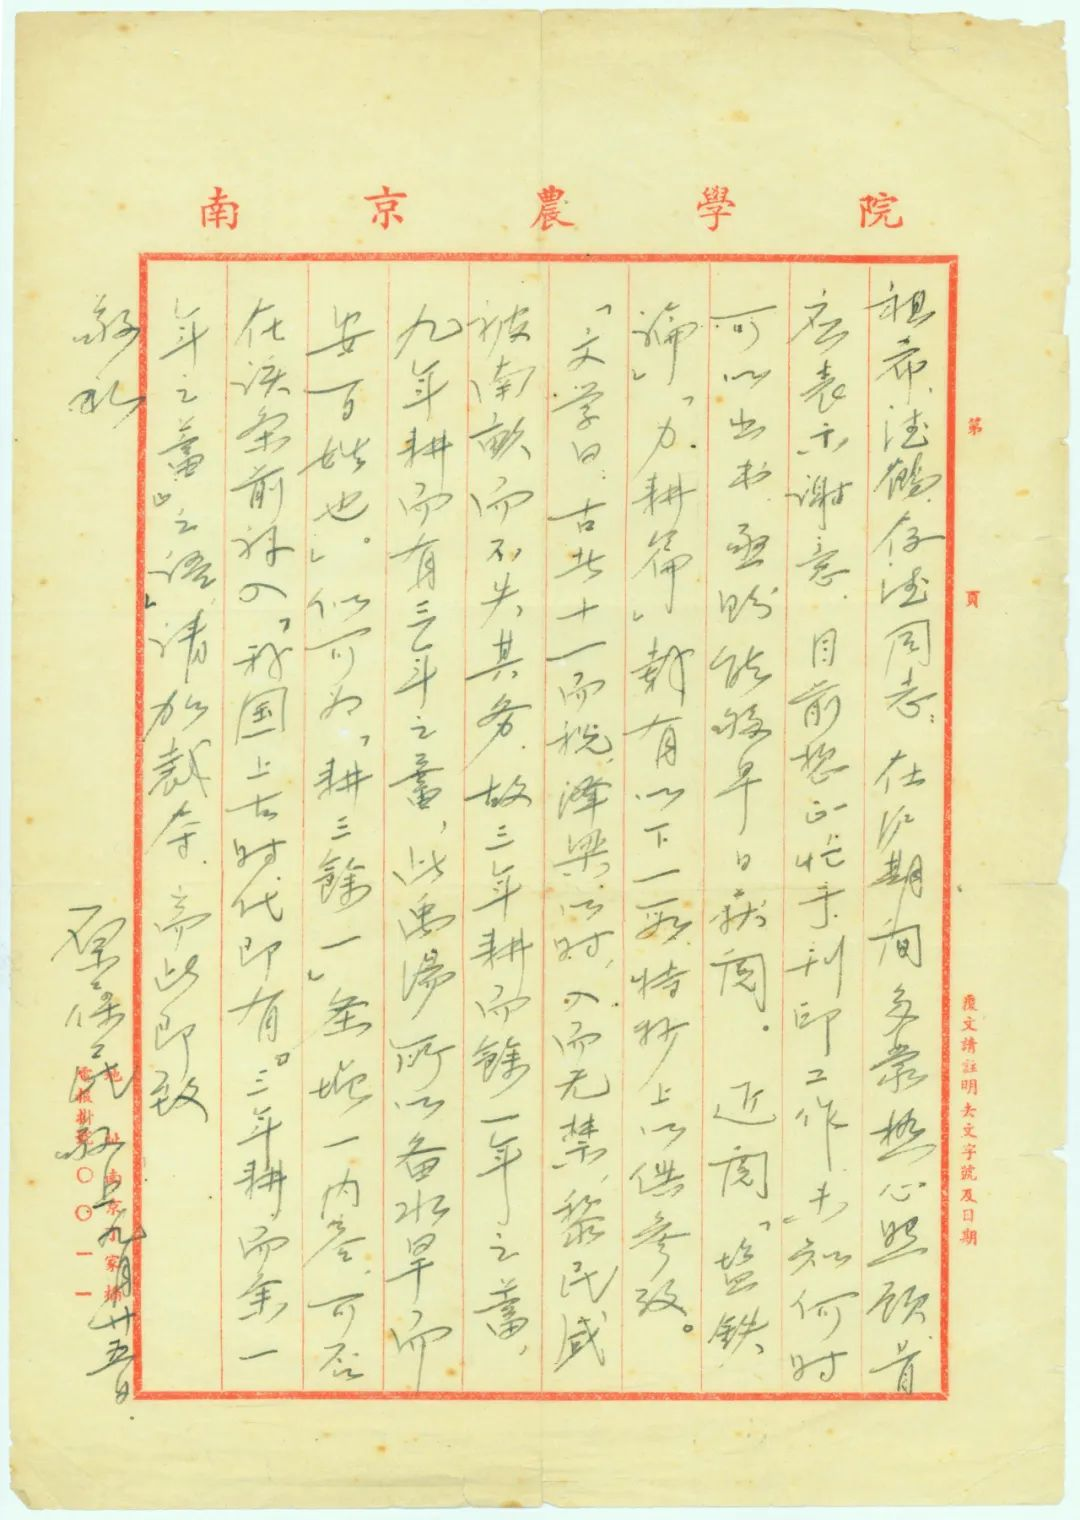 南京農學院
祖希、德鶴、存德同志：在沪期间多蒙热心照顾，首
应表示谢意．目前想正忙于刊印工作，未知何时
可以出书，亟盼能够早日获阅．近阅「塩铁
論」「力耕篇」载有以下一段，特抄上以供参攷。
「文学曰：古者十一而税，澤梁以时入而无禁，黎民咸
被南畝而不失其务．故三年耕而餘一年之蓄，
九年耕而有三年之蓄，此禹湯所以备水旱而
安百姓也。」似可为「耕三餘一」条增一内容，可否
在该条前补入「我国上古时代即有『三年耕而余一
年之蓄』之语」请加裁夺．耑此即致
敬礼
原葆民敬上九月廿五日
第 頁
復文請註明去文字號及日期
地址南京丁家橋
電報掛號〇〇一一